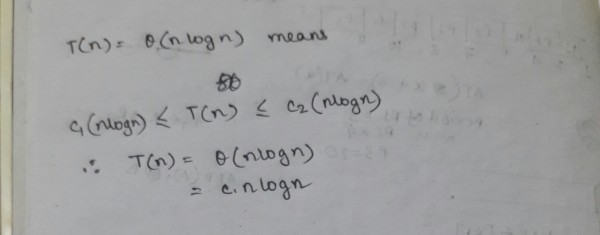 T(n) = θ(n logn) means
c₁(nlogn) ≤ T(n) ≤ c₂(nlogn)
∴ T(n) = θ(nlogn)
= c.nlogn